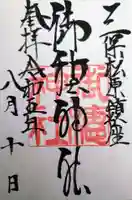 三保松原鎮座
御穂神社
奉拝令和五年
八月十日